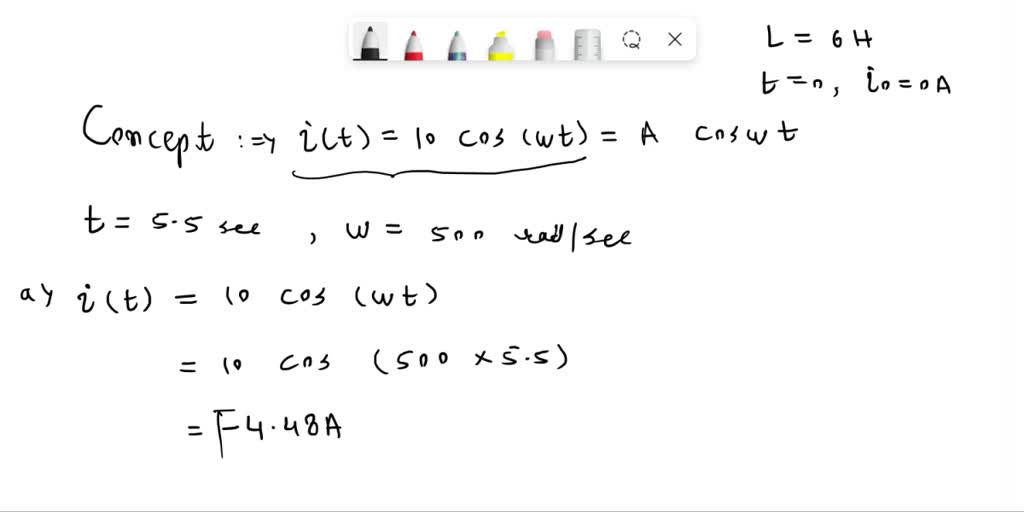 L = 6 H
t = 0, i0 = 0 A
Concept :⇒ i(t) = 10 cos (wt) = A cos wt
t = 5.5 sec , w = 500 rad/sec
a) i(t) = 10 cos (wt)
= 10 cos (500 × 5.5)
= -4.48A